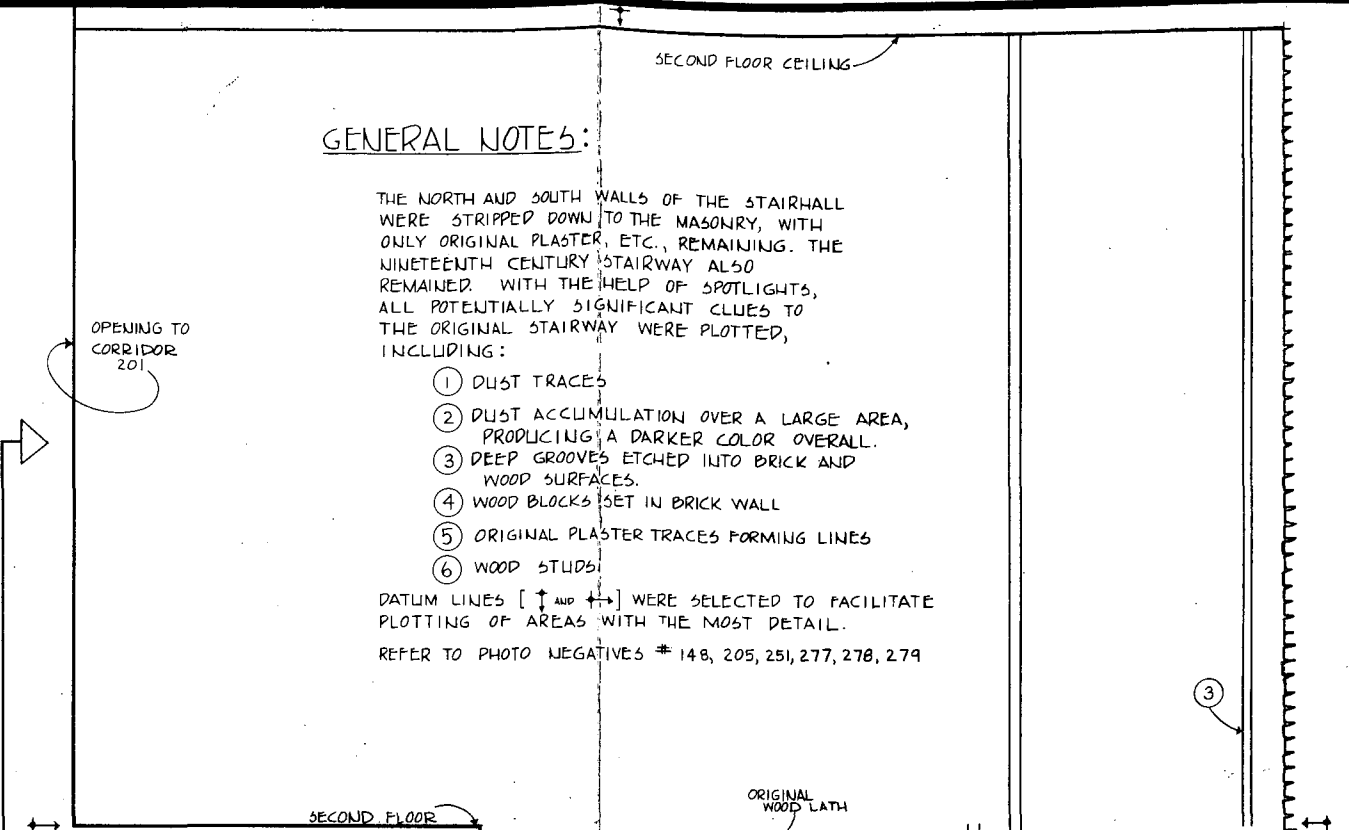 SECOND FLOOR CEILING
GENERAL NOTES:
THE NORTH AND SOUTH WALLS OF THE STAIRHALL
WERE STRIPPED DOWN TO THE MASONRY, WITH
ONLY ORIGINAL PLASTER, ETC., REMAINING. THE
NINETEENTH CENTURY STAIRWAY ALSO
REMAINED. WITH THE HELP OF SPOTLIGHTS,
ALL POTENTIALLY SIGNIFICANT CLUES TO
THE ORIGINAL STAIRWAY WERE PLOTTED,
INCLUDING:
OPENING TO
CORRIDOR
201
1 DUST TRACES
2 DUST ACCUMULATION OVER A LARGE AREA,
PRODUCING A DARKER COLOR OVERALL.
3 DEEP GROOVES ETCHED INTO BRICK AND
WOOD SURFACES.
4 WOOD BLOCKS SET IN BRICK WALL
5 ORIGINAL PLASTER TRACES FORMING LINES
6 WOOD STUDS
DATUM LINES [ AND ] WERE SELECTED TO FACILITATE
PLOTTING OF AREAS WITH THE MOST DETAIL.
REFER TO PHOTO NEGATIVES # 148, 205, 251, 277, 278, 279
3
SECOND FLOOR
ORIGINAL
WOOD LATH